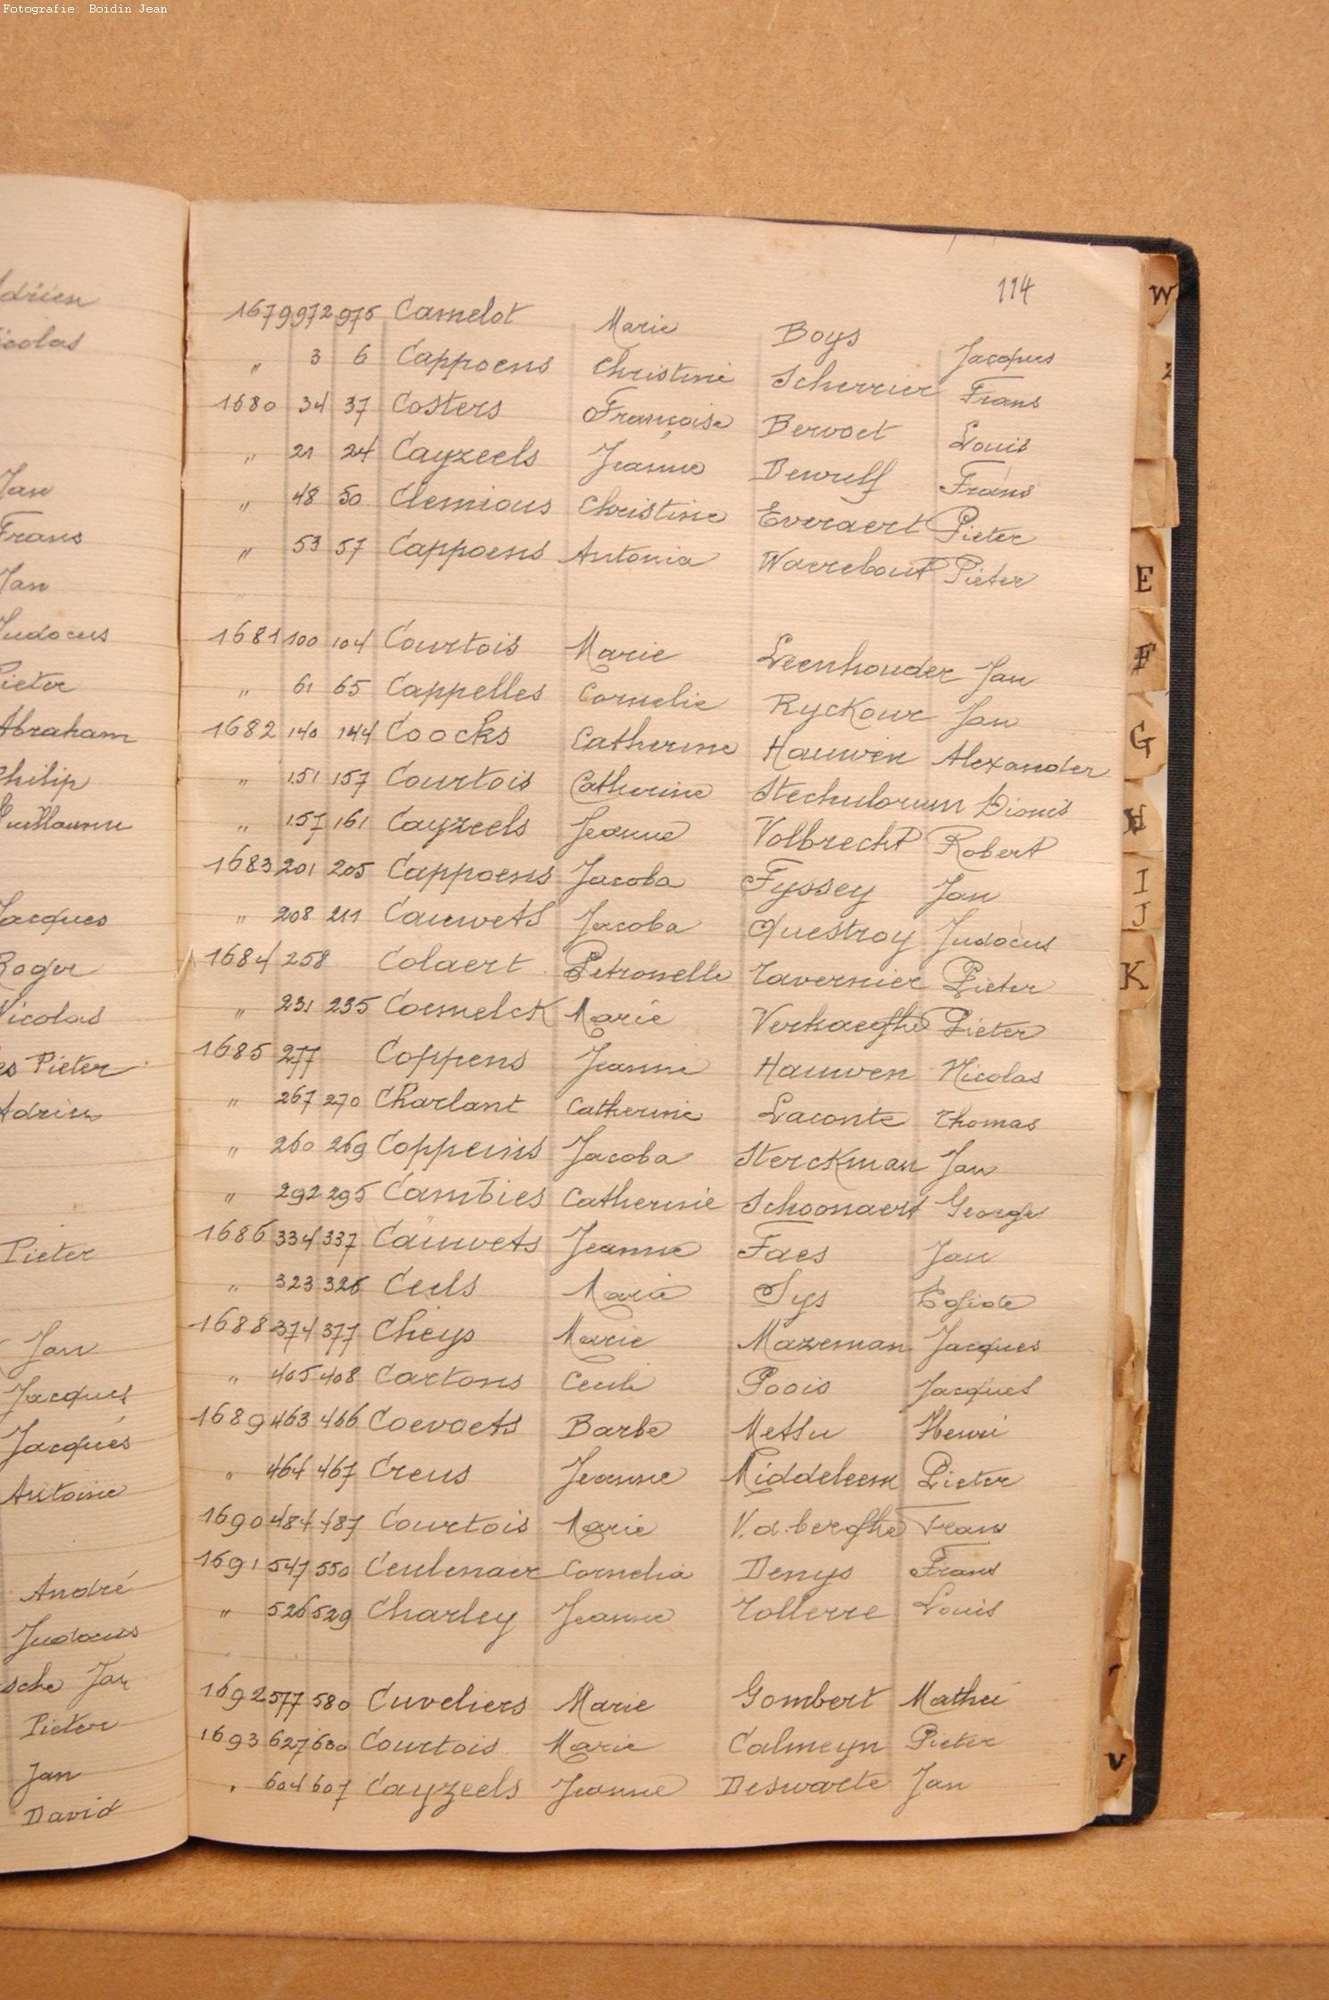 Fotografie: Boidin Jean
114
1679 972 975 Camelot Marie Boys Jacques
" 3 6 Cappoens Christine Scherrier Frans
1680 34 37 Costers Françoise Bervoet Louis
" 21 24 Cayzeels Jeanne Dewulf Frans
" 48 50 Clemious Christine Everaert Pieter
" 53 57 Cappoens Antonia Waerebout Pieter
1681 100 104 Courtois Marie Leenhouder Jan
" 61 65 Cappelles Cornelie Ryckour Jan
1682 140 144 Coocks Catherine Hauwen Alexander
" 151 157 Courtois Catherine Stechulorum Dionis
" 157 161 Cayzeels Jeanne Volbrecht Robert
1683 201 205 Cappoens Jacoba Fyssey Jan
" 208 211 Cauwets Jacoba Questroy Judocus
1684 258 Colaert Petronelle Tavernier Pieter
" 231 235 Coemelck Marie Verhaeghe Pieter
1685 277 Coppens Jeanne Hauwen Nicolas
" 267 270 Charlant Catherine Laconte Thomas
" 260 269 Coppeins Jacoba Sterckman Jan
" 292 295 Cambies Catherine Schoonaert George
1686 334 337 Cauwets Jeanne Faes Jan
" 323 326 Ceels Marie Sys Egide
1688 374 377 Cheys Marie Mazeman Jacques
" 405 408 Cartons Cecile Poois Jacques
1689 463 466 Coevoets Barbe Metsu Henri
" 464 467 Creus Jeanne Middeleem Pieter
1690 484 487 Courtois Marie V.d.berghe Frans
1691 547 550 Ceulenaer Cornelia Denys Frans
" 526 529 Charley Jeanne Tollerre Louis
1692 577 580 Cuveliers Marie Gombert Mathei
1693 627 630 Courtois Marie Calmeyn Pieter
" 604 607 Cayzeels Jeanne Deswarte Jan
Jan
Frans
Jan
Judocus
Pieter
Abraham
Philip
Guillaume
Jacques
Roger
Nicolas
Pieter
Adrien
Pieter
Jan
Jacques
Jacques
Antoine
André
Judocus
Jan
Pieter
Jan
David
W
E
F
G
H
I
J
K
V